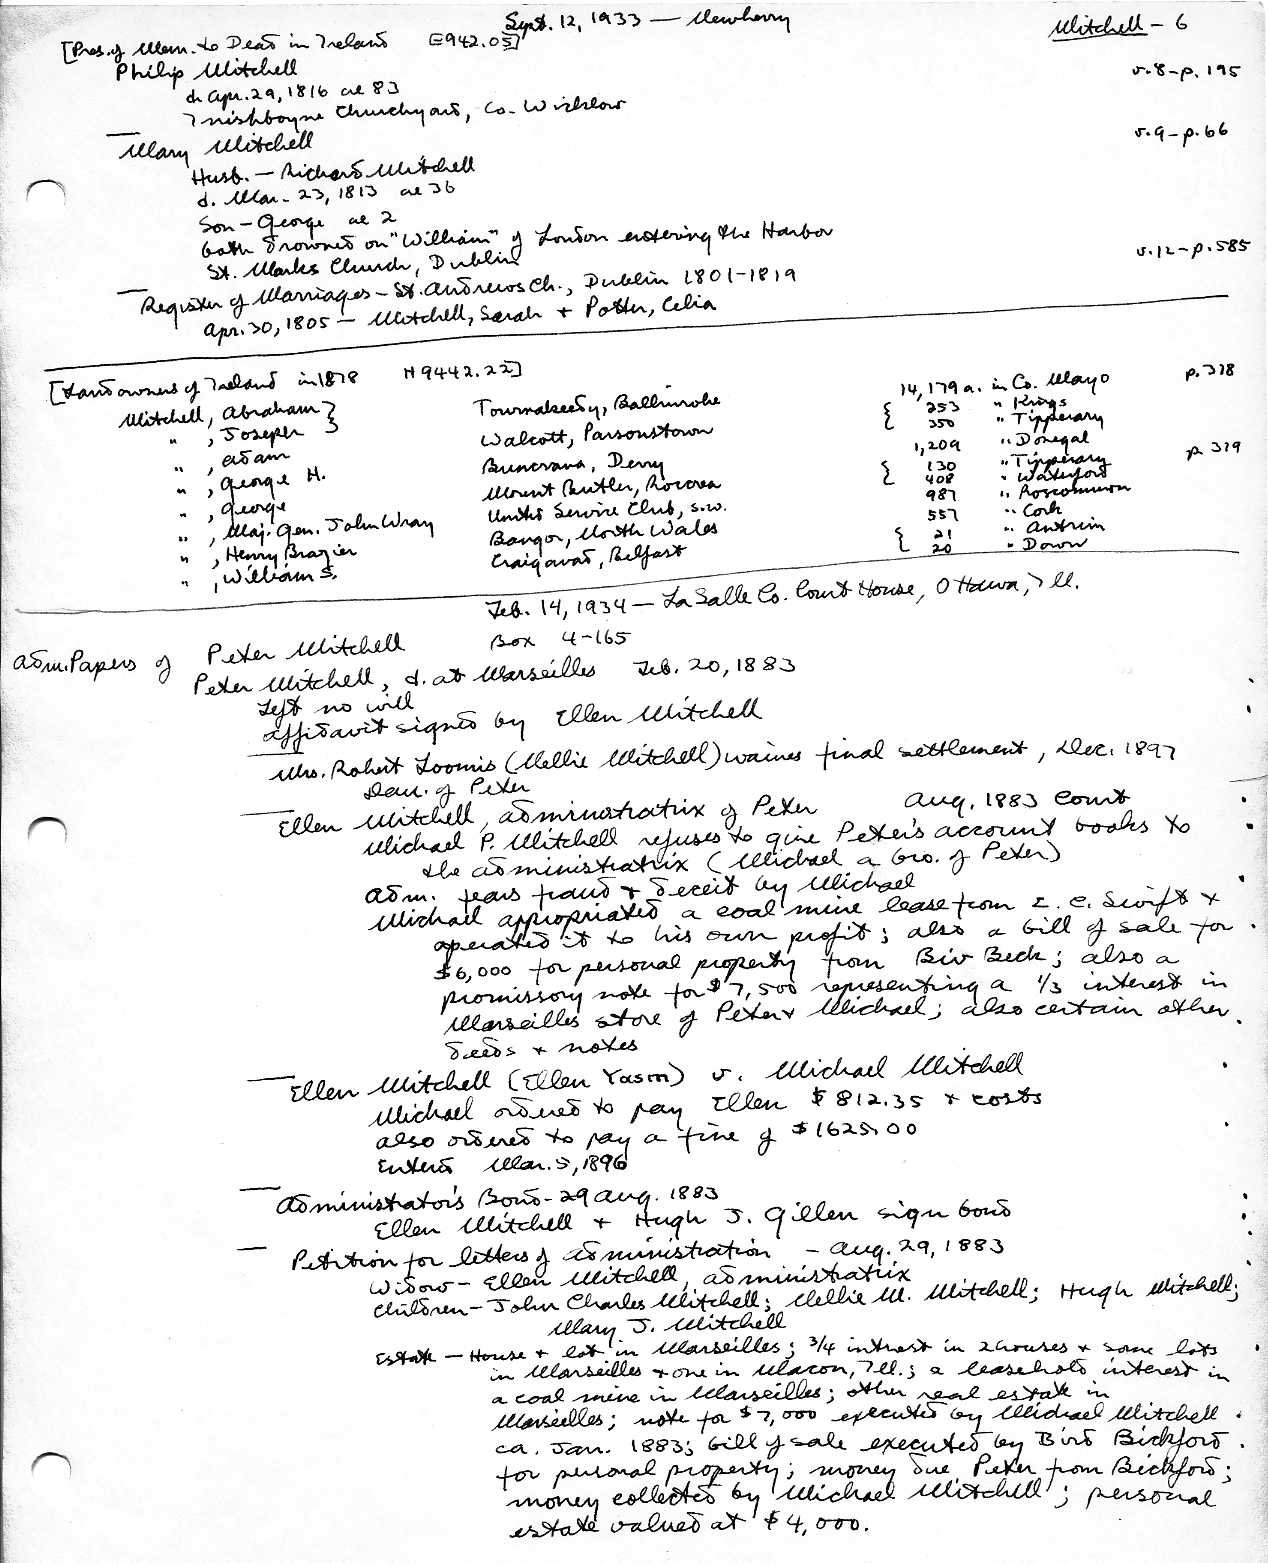 Sept. 12, 1933 — Newberry
Mitchell - 6
[Pres. of Mem. to Dead in Ireland E942.05]
Philip Mitchell v.8-p.195
d. Apr. 29, 1816 ae 83
Inishboyne Churchyard, Co. Wicklow
Mary Mitchell v.9-p.66
Husb. — Richard Mitchell
d. Mar. 23, 1813 ae 36
Son - George ae 2
both drowned on "William" of London entering the Harbor
St. Marks Church, Dublin v.12-p.585
Register of Marriages - St. Andrews Ch., Dublin 1801-1819
Apr. 30, 1805 — Mitchell, Sarah + Potter, Celia
[Landowners of Ireland in 1878 H9442.22]
Mitchell, Abraham } Tourmakeedy, Ballinrobe 14,179 a. in Co. Mayo p. 318
" , Joseph } Walcott, Parsonstown { 253 " Kings
" , Adam Buncrana, Derry { 350 " Tipperary
" , George H. Mount Butler, Roscrea 1,209 " Donegal
" , George United Service Club, S.W. { 130 " Tipperary p. 319
" , Maj. Gen. John Wray Bangor, North Wales { 408 " Waterford
" , Henry Brazier Craigavad, Belfast 987 " Roscommon
" , William S. 557 " Cork
{ 21 " Antrim
{ 20 " Down
Feb. 14, 1934 — La Salle Co. Court House, Ottawa, Ill.
Adm. Papers of Peter Mitchell Box 4-165
Peter Mitchell, d. at Marseilles Feb. 20, 1883
Left no will
Affidavit signed by Ellen Mitchell
Mrs. Robert Loomis (Nellie Mitchell) waives final settlement, Dec. 1897
Dau. of Peter
Ellen Mitchell, administratrix of Peter Aug. 1883 Court
Michael P. Mitchell refuses to give Peter's account books to
the administratrix (Michael a bro. of Peter)
Adm. fears fraud + deceit by Michael
Michael appropriated a coal mine lease from I. C. Swift +
operated it to his own profit; also a bill of sale for
$6,000 for personal property from Bird Beck; also a
promissory note for $7,500 representing a 1/3 interest in
Marseilles store of Peter + Michael; also certain other
deeds + notes
Ellen Mitchell (Ellen Yason) v. Michael Mitchell
Michael ordered to pay Ellen $812.35 + costs
also ordered to pay a fine of $1625.00
Entered Mar. 5, 1896
Administrator's Bond - 29 Aug. 1883
Ellen Mitchell + Hugh J. Gillen sign bond
Petition for letters of administration - Aug. 29, 1883
Widow - Ellen Mitchell, administratrix
Children - John Charles Mitchell; Nellie M. Mitchell; Hugh Mitchell;
Mary J. Mitchell
Estate — House + lot in Marseilles; 3/4 interest in 2 houses + some lots
in Marseilles + one in Macon, Ill.; a leasehold interest in
a coal mine in Marseilles; other real estate in
Marseilles; note for $7,000 executed by Michael Mitchell
ca. Jan. 1883; bill of sale executed by Bird Bickford
for personal property; money due Peter from Bickford;
money collected by Michael Mitchell; personal
estate valued at $4,000.